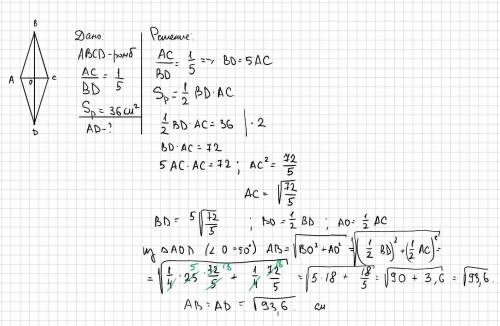 B
A
O
C
D
Дано:
ABCD-ромб
AC/BD = 1/5
Sр = 36 см²
AD-?
Решение:
AC/BD = 1/5 => BD = 5AC
Sр = 1/2 BD·AC
1/2 BD·AC = 36 | ·2
BD·AC = 72
5 AC·AC = 72 ; AC² = 72/5
AC = √(72/5)
BD = 5√(72/5) ; BO = 1/2 BD ; AO = 1/2 AC
из △AOD (∠O = 90°) AB = √(BO² + AO²) = √((1/2 BD)² + (1/2 AC)²) =
= √(1/4 · 25 · 72/5 + 1/4 · 72/5) = √(5·18 + 18/5) = √(90 + 3,6) = √93,6.
5 18 18
AB = AD = √93,6 см